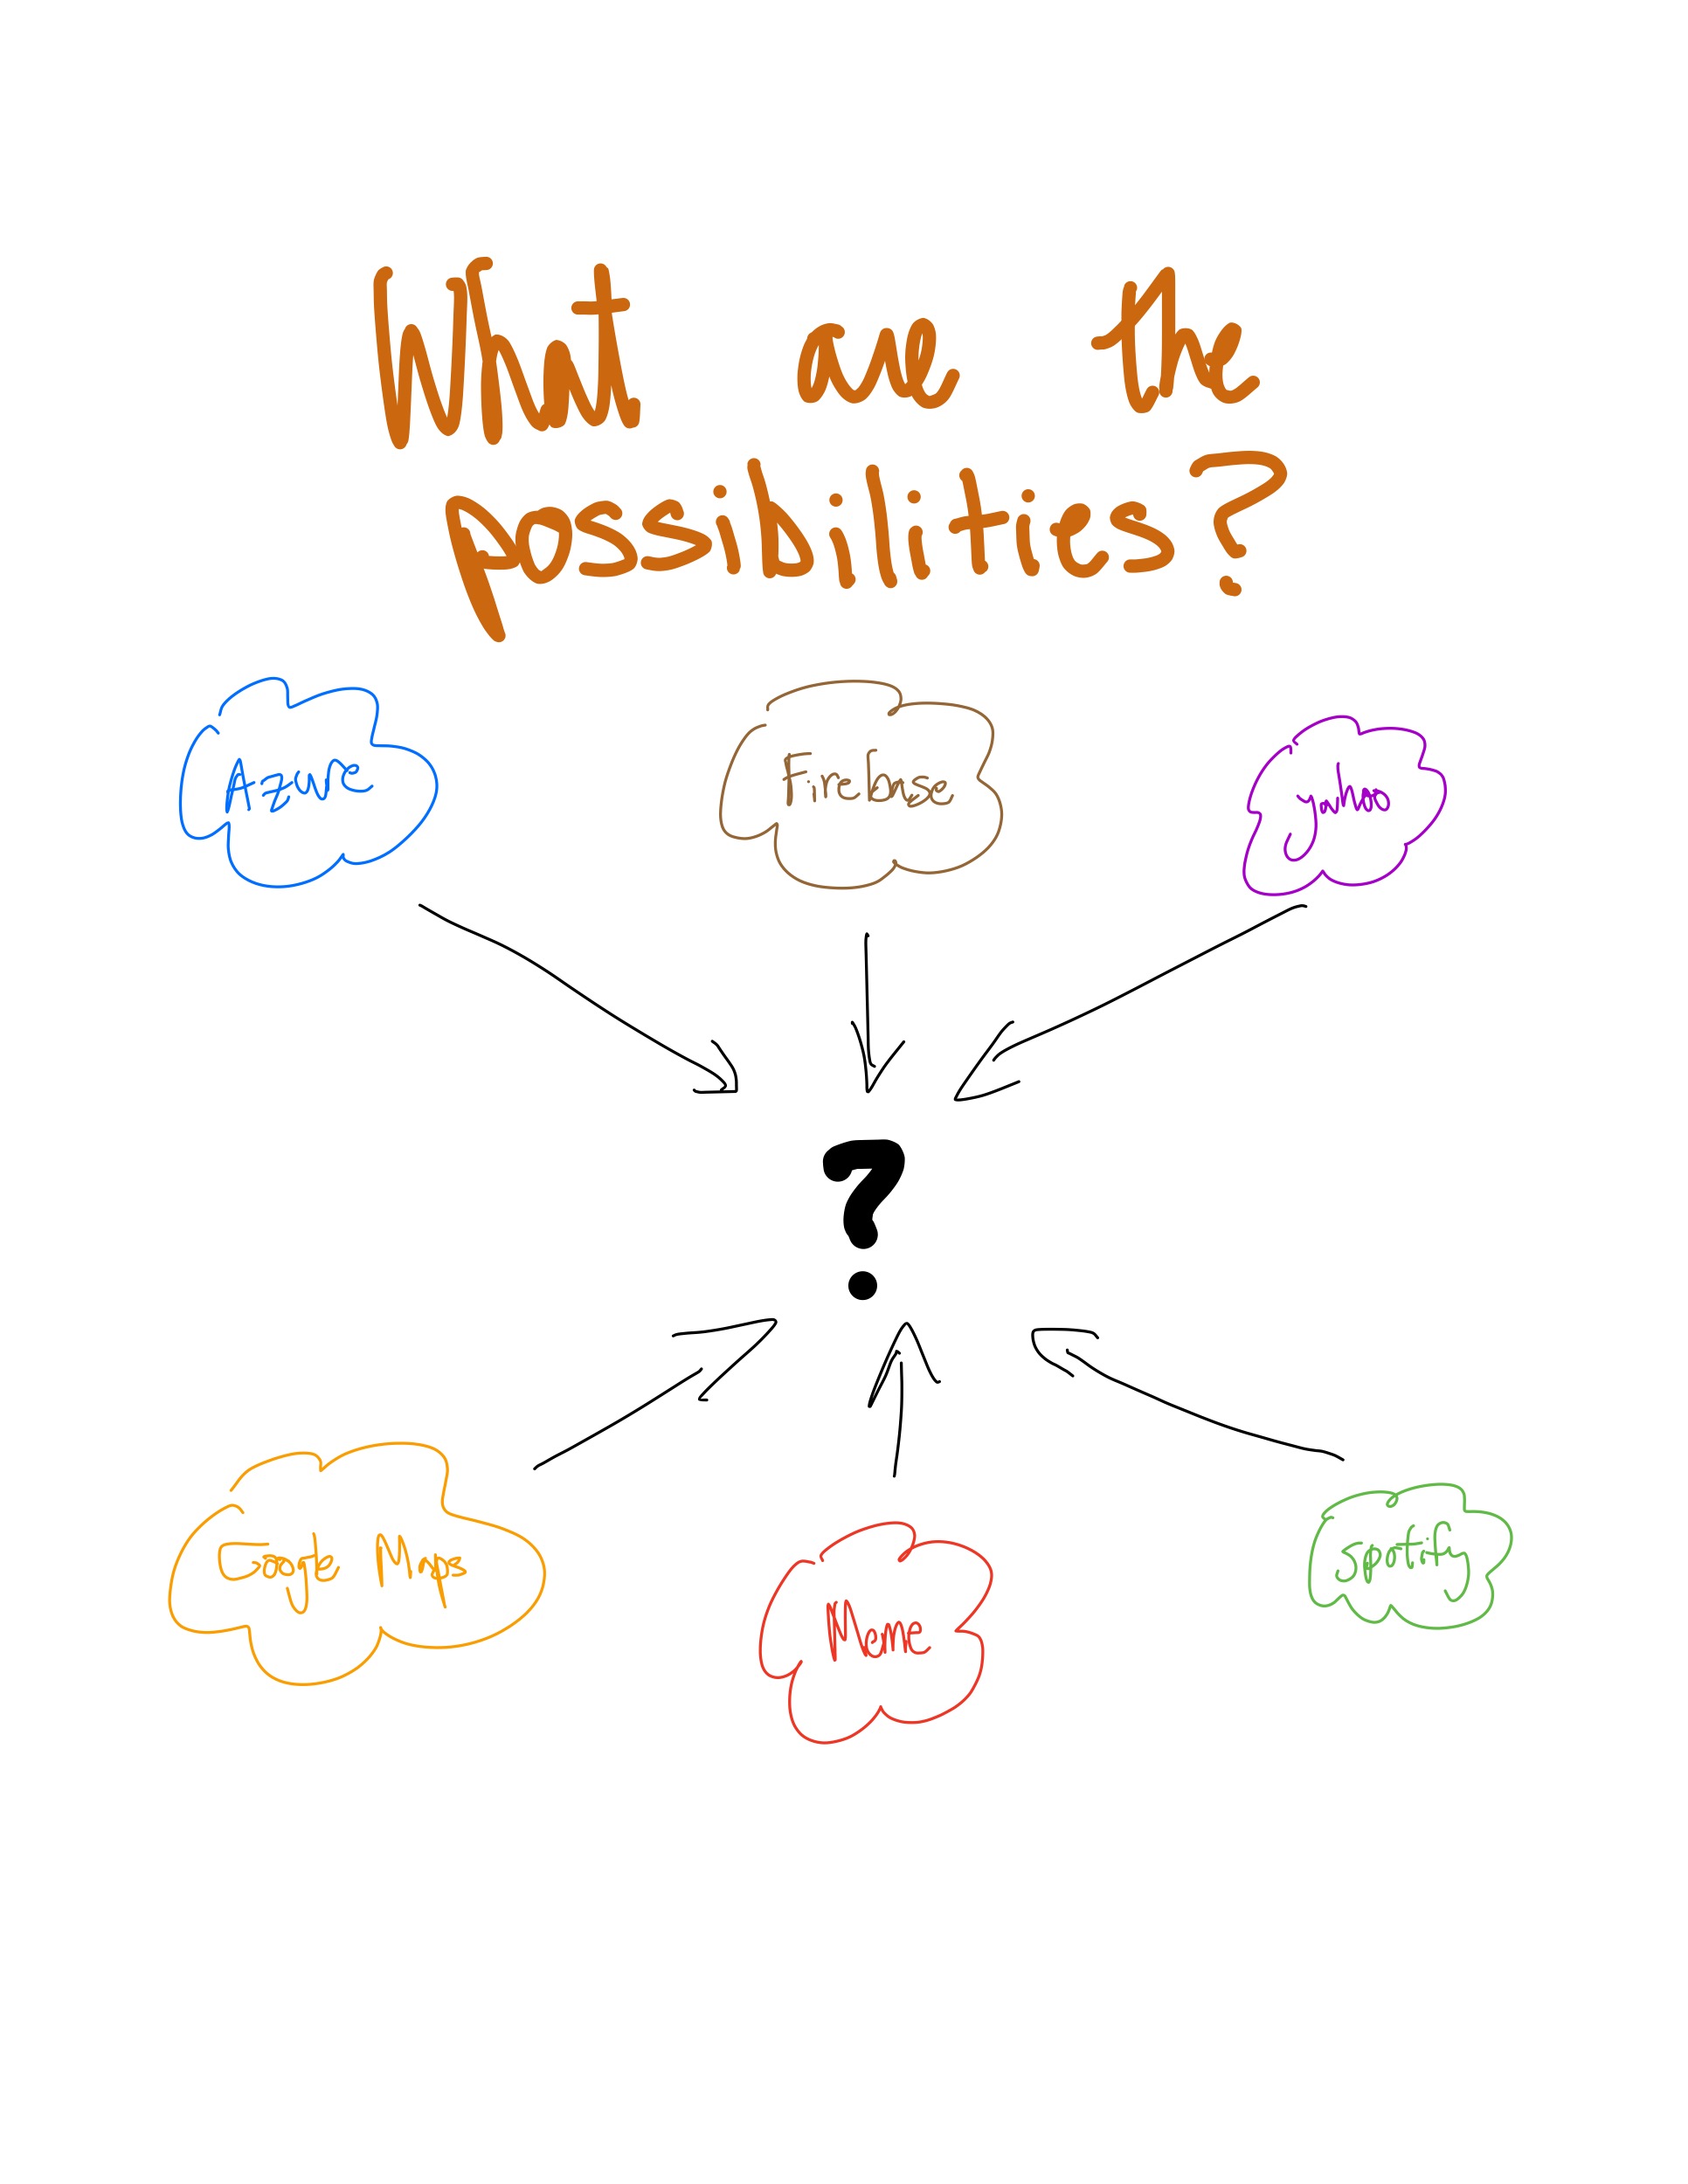 What are the
possibilities?
Azure
Firebase
Yahoo
?
Google Maps
Meme
Spotify